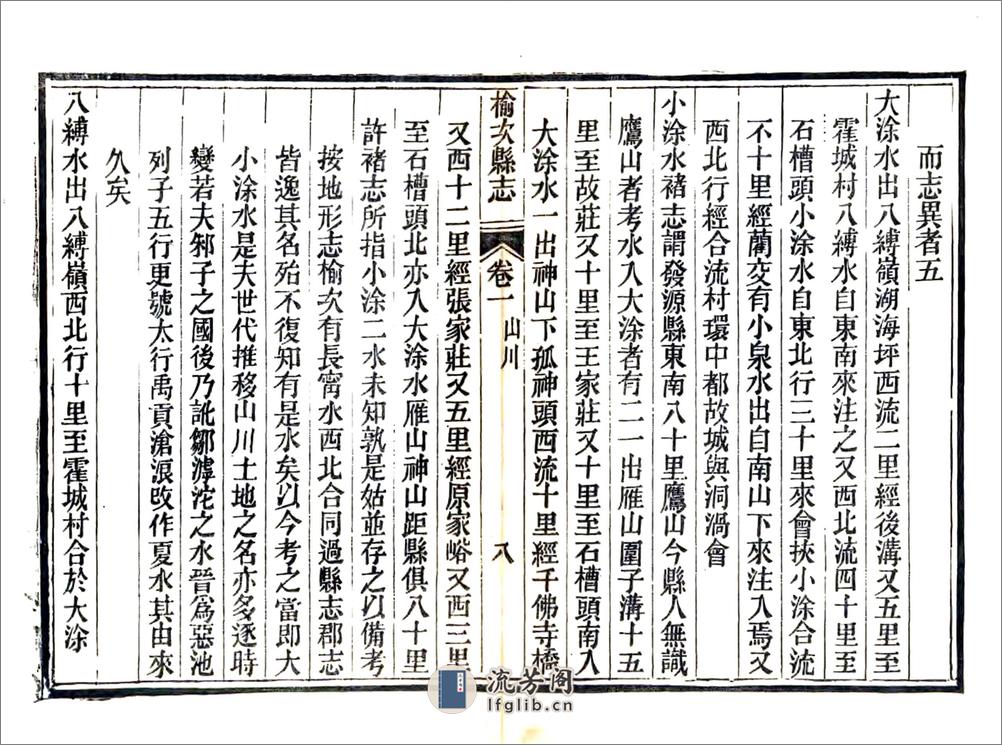 而志異者五
大涂水出八縛嶺湖海坪西流二里經後溝又五里至
霍城村八縛水自東南來注之又西北流四十里至
石槽頭小涂水自東北行三十里來會挾小涂合流
不十里經藺交有小泉水出自南山下來注入焉又
西北行經合流村環中都故城與洞渦會
小涂水褚志謂發源縣東南八十里鷹山今縣人無識
鷹山者考水入大涂者有二一出雁山圍子溝十五
里至故莊又十里至王家莊又十里至石槽頭南入
大涂水一出神山下孤神頭西流十里經千佛寺橋
榆次縣志
卷一
山川
八
又西十二里經張家莊又五里經原家峪又西三里
至石槽頭北亦入大涂水雁山神山距縣俱八十里
許褚志所指小涂二水未知孰是姑並存之以備考
按地形志榆次有長甯水西北合同過縣志郡志
皆逸其名殆不復知有是水矣以今考之當即大
小涂水是夫世代推移山川土地之名亦多逐時
變若夫邾子之國後乃訛鄒滹沱之水晉爲惡池
列子五行更號太行禹貢滄浪改作夏水其由來
久矣
八縛水出八縛嶺西北行十里至霍城村合於大涂
流芳阁
lfglib.cn